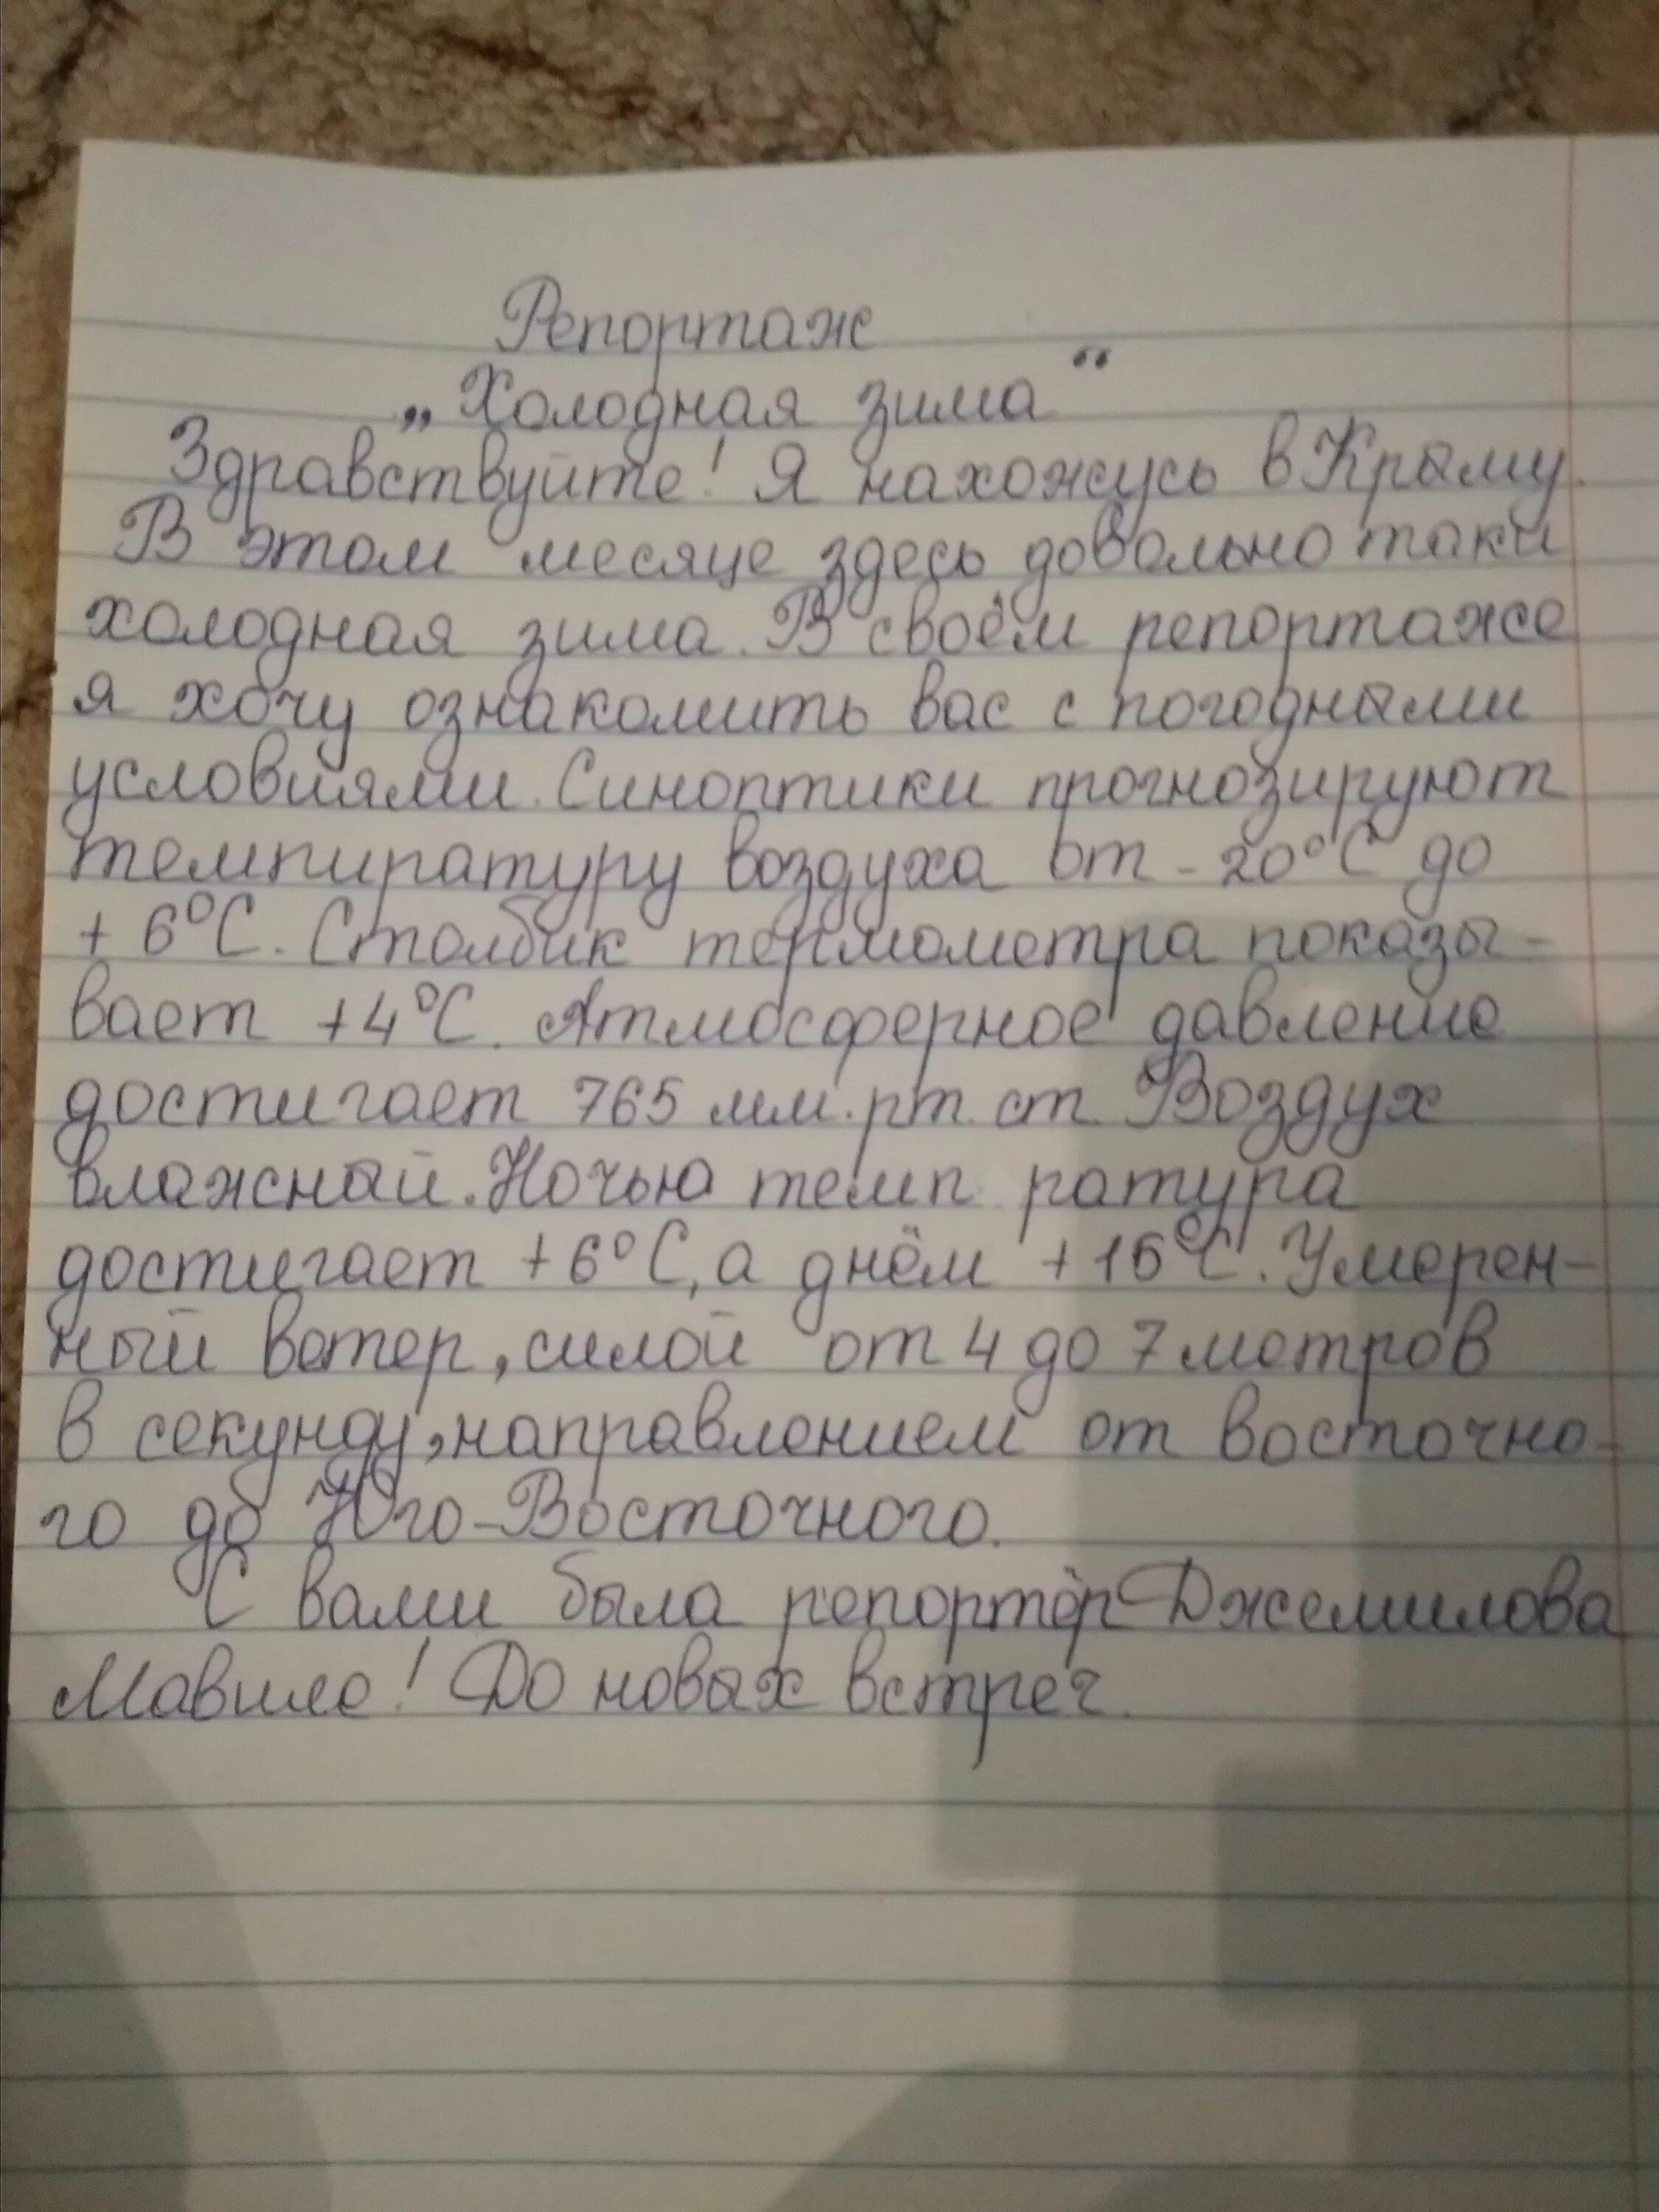 Репортаж
„Холодная зима“
Здравствуйте! Я нахожусь в Крыму.
В этом месяце здесь довольно таки
холодная зима. В своём репортаже
я хочу ознакомить вас с погодными
условиями. Синоптики прогнозируют
темпиратуру воздуха от -20°С до
+6°С. Столбик термометра показы-
вает +4°С. Атмосферное давление
достигает 765 мм. рт. ст. Воздух
влажный. Ночью темп ратура
достигает +6°С, а днём +16°С. Умерен-
ный ветер, силой от 4 до 7 метров
в секунду, направлением от восточно-
го до Юго-Восточного.
С вами была репортёр Джемилова
Мавиле! До новых встреч.